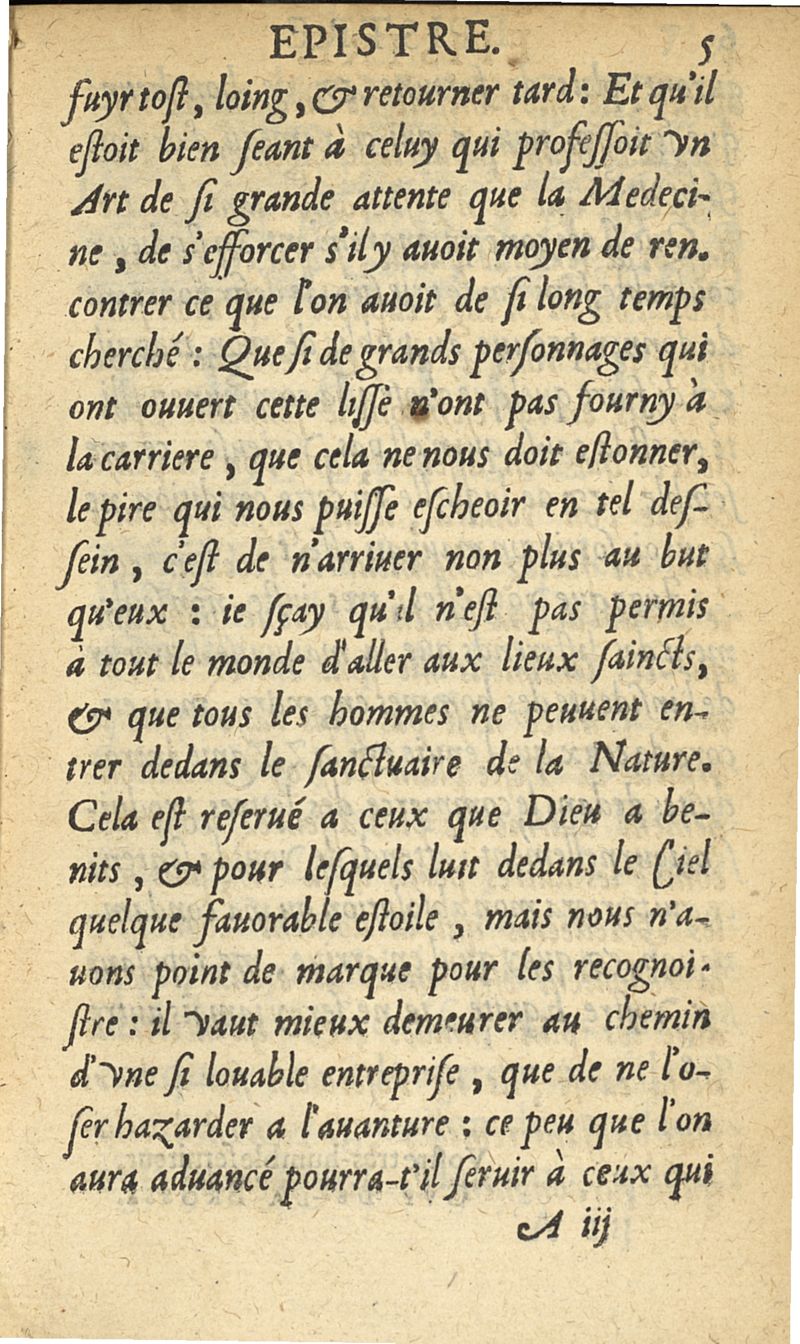 EPISTRE. 5
fuyr toſt, loing, & retourner tard: Et qu'il
eſtoit bien ſeant à celuy qui profeſſoit vn
Art de ſi grande attente que la Medeci-
ne, de s'efforcer s'il y auoit moyen de ren.
contrer ce que l'on auoit de ſi long temps
cherché : Que ſi de grands perſonnages qui
ont ouuert cette liſſe n'ont pas fourny à
la carriere, que cela ne nous doit eſtonner,
le pire qui nous puiſſe eſcheoir en tel deſ-
ſein, c'eſt de n'arriuer non plus au but
qu'eux : ie ſçay qu'il n'eſt pas permis
à tout le monde d'aller aux lieux ſaincts,
& que tous les hommes ne peuuent en-
trer dedans le ſanctuaire de la Nature.
Cela eſt reſerué a ceux que Dieu a be-
nits, & pour leſquels luit dedans le Ciel
quelque fauorable eſtoile, mais nous n'a-
uons point de marque pour les recognoi-
ſtre : il vaut mieux demeurer au chemin
d'vne ſi louable entrepriſe, que de ne l'o-
ſer hazarder a l'auanture : ce peu que l'on
aura aduancé pourra-t'il ſeruir à ceux qui
A iij